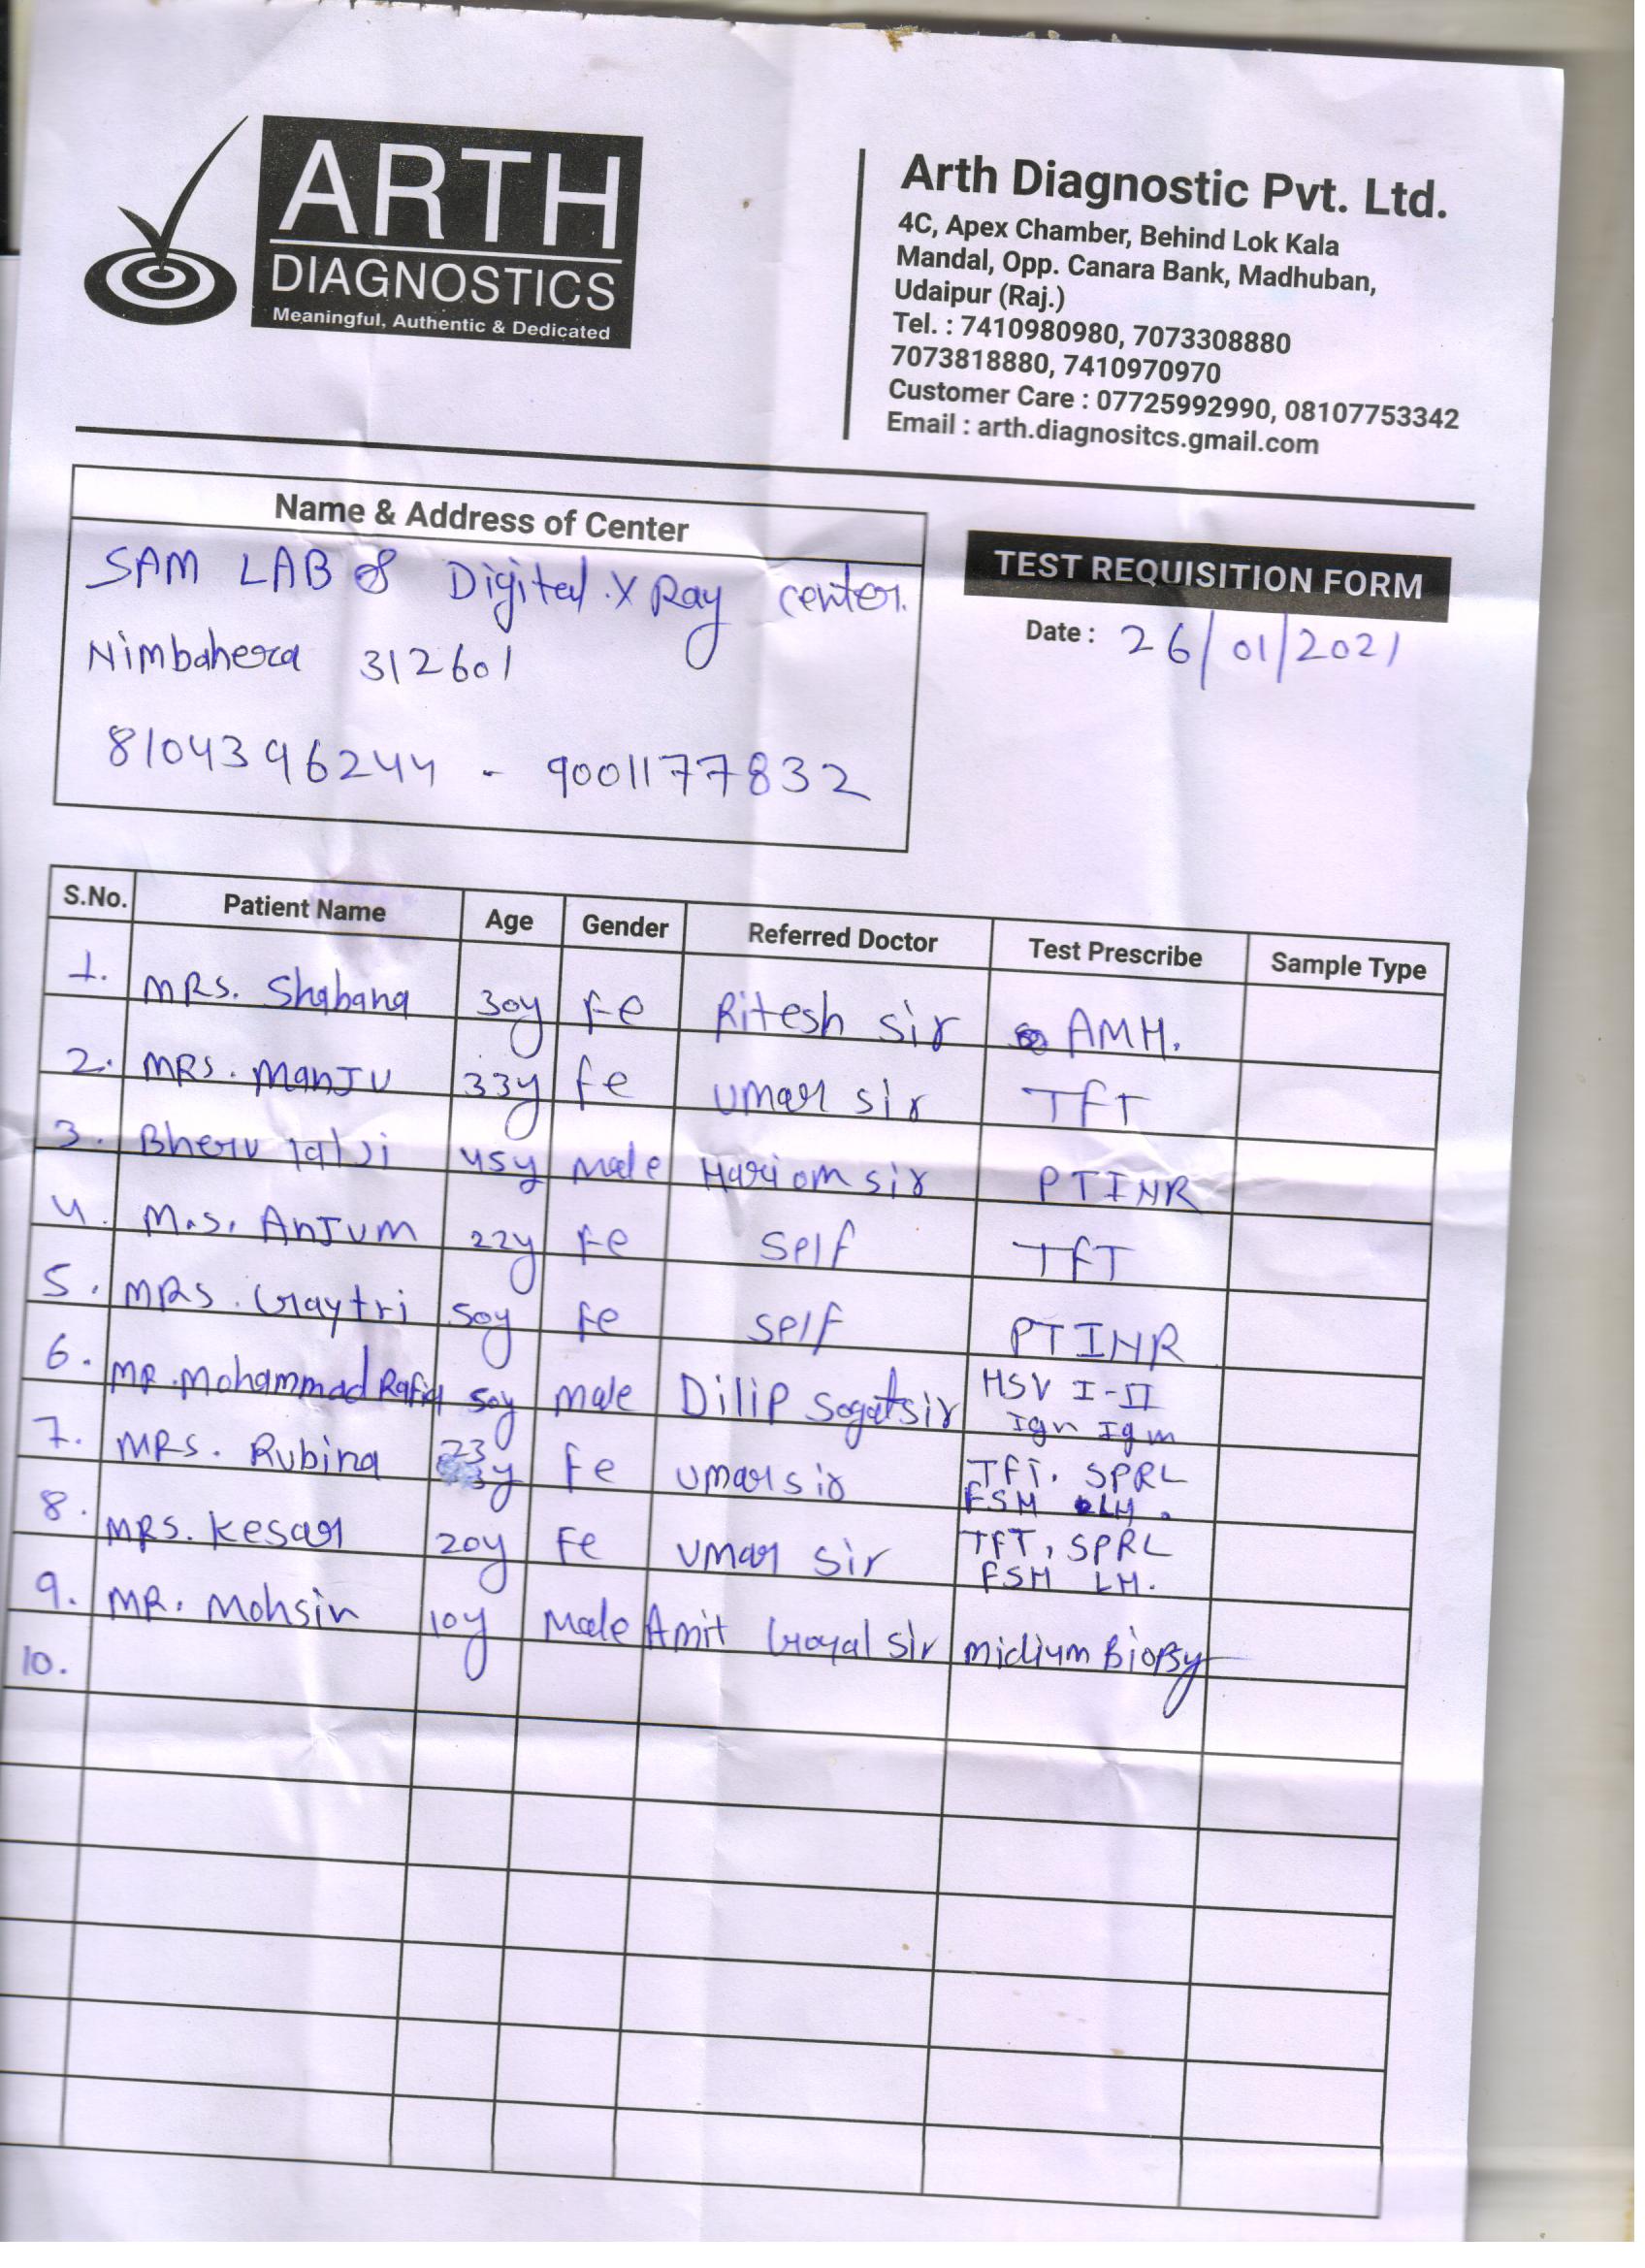 ARTH
DIAGNOSTICS
Meaningful, Authentic & Dedicated
Arth Diagnostic Pvt. Ltd.
4C, Apex Chamber, Behind Lok Kala
Mandal, Opp. Canara Bank, Madhuban,
Udaipur (Raj.)
Tel. : 7410980980, 7073308880
7073818880, 7410970970
Customer Care : 07725992990, 08107753342
Email : arth.diagnositcs.gmail.com
Name & Address of Center
SAM LAB & Digital X Ray center.
Nimbahera 312601
8104396244 - 9001177832
TEST REQUISITION FORM
Date : 26/01/2021
S.No. Patient Name Age Gender Referred Doctor Test Prescribe Sample Type
1. MRS. Shabana 30y Fe Ritesh sir AMH.
2. MRS. ManJu 33y fe Umar sir TfT
3. Bheru lalJi 45y Male Hariom sir PTINR
4. M.s. AnJum 22y Fe Self TfT
5. MRS. Gaytri 50y Fe Self PTINR
6. MR. Mohammad Rafiq 50y Male Dilip sir HSV I-II
Igm
7. MRS. Rubina 23y Fe Umar sir TFT. SPRL
FSH LH.
8. MRS. Kesar 20y Fe Umar sir TFT, SPRL
FSH LH.
9. MR. Mohsin 10y Male Amit Goyal Sir midium Biopsy
10.